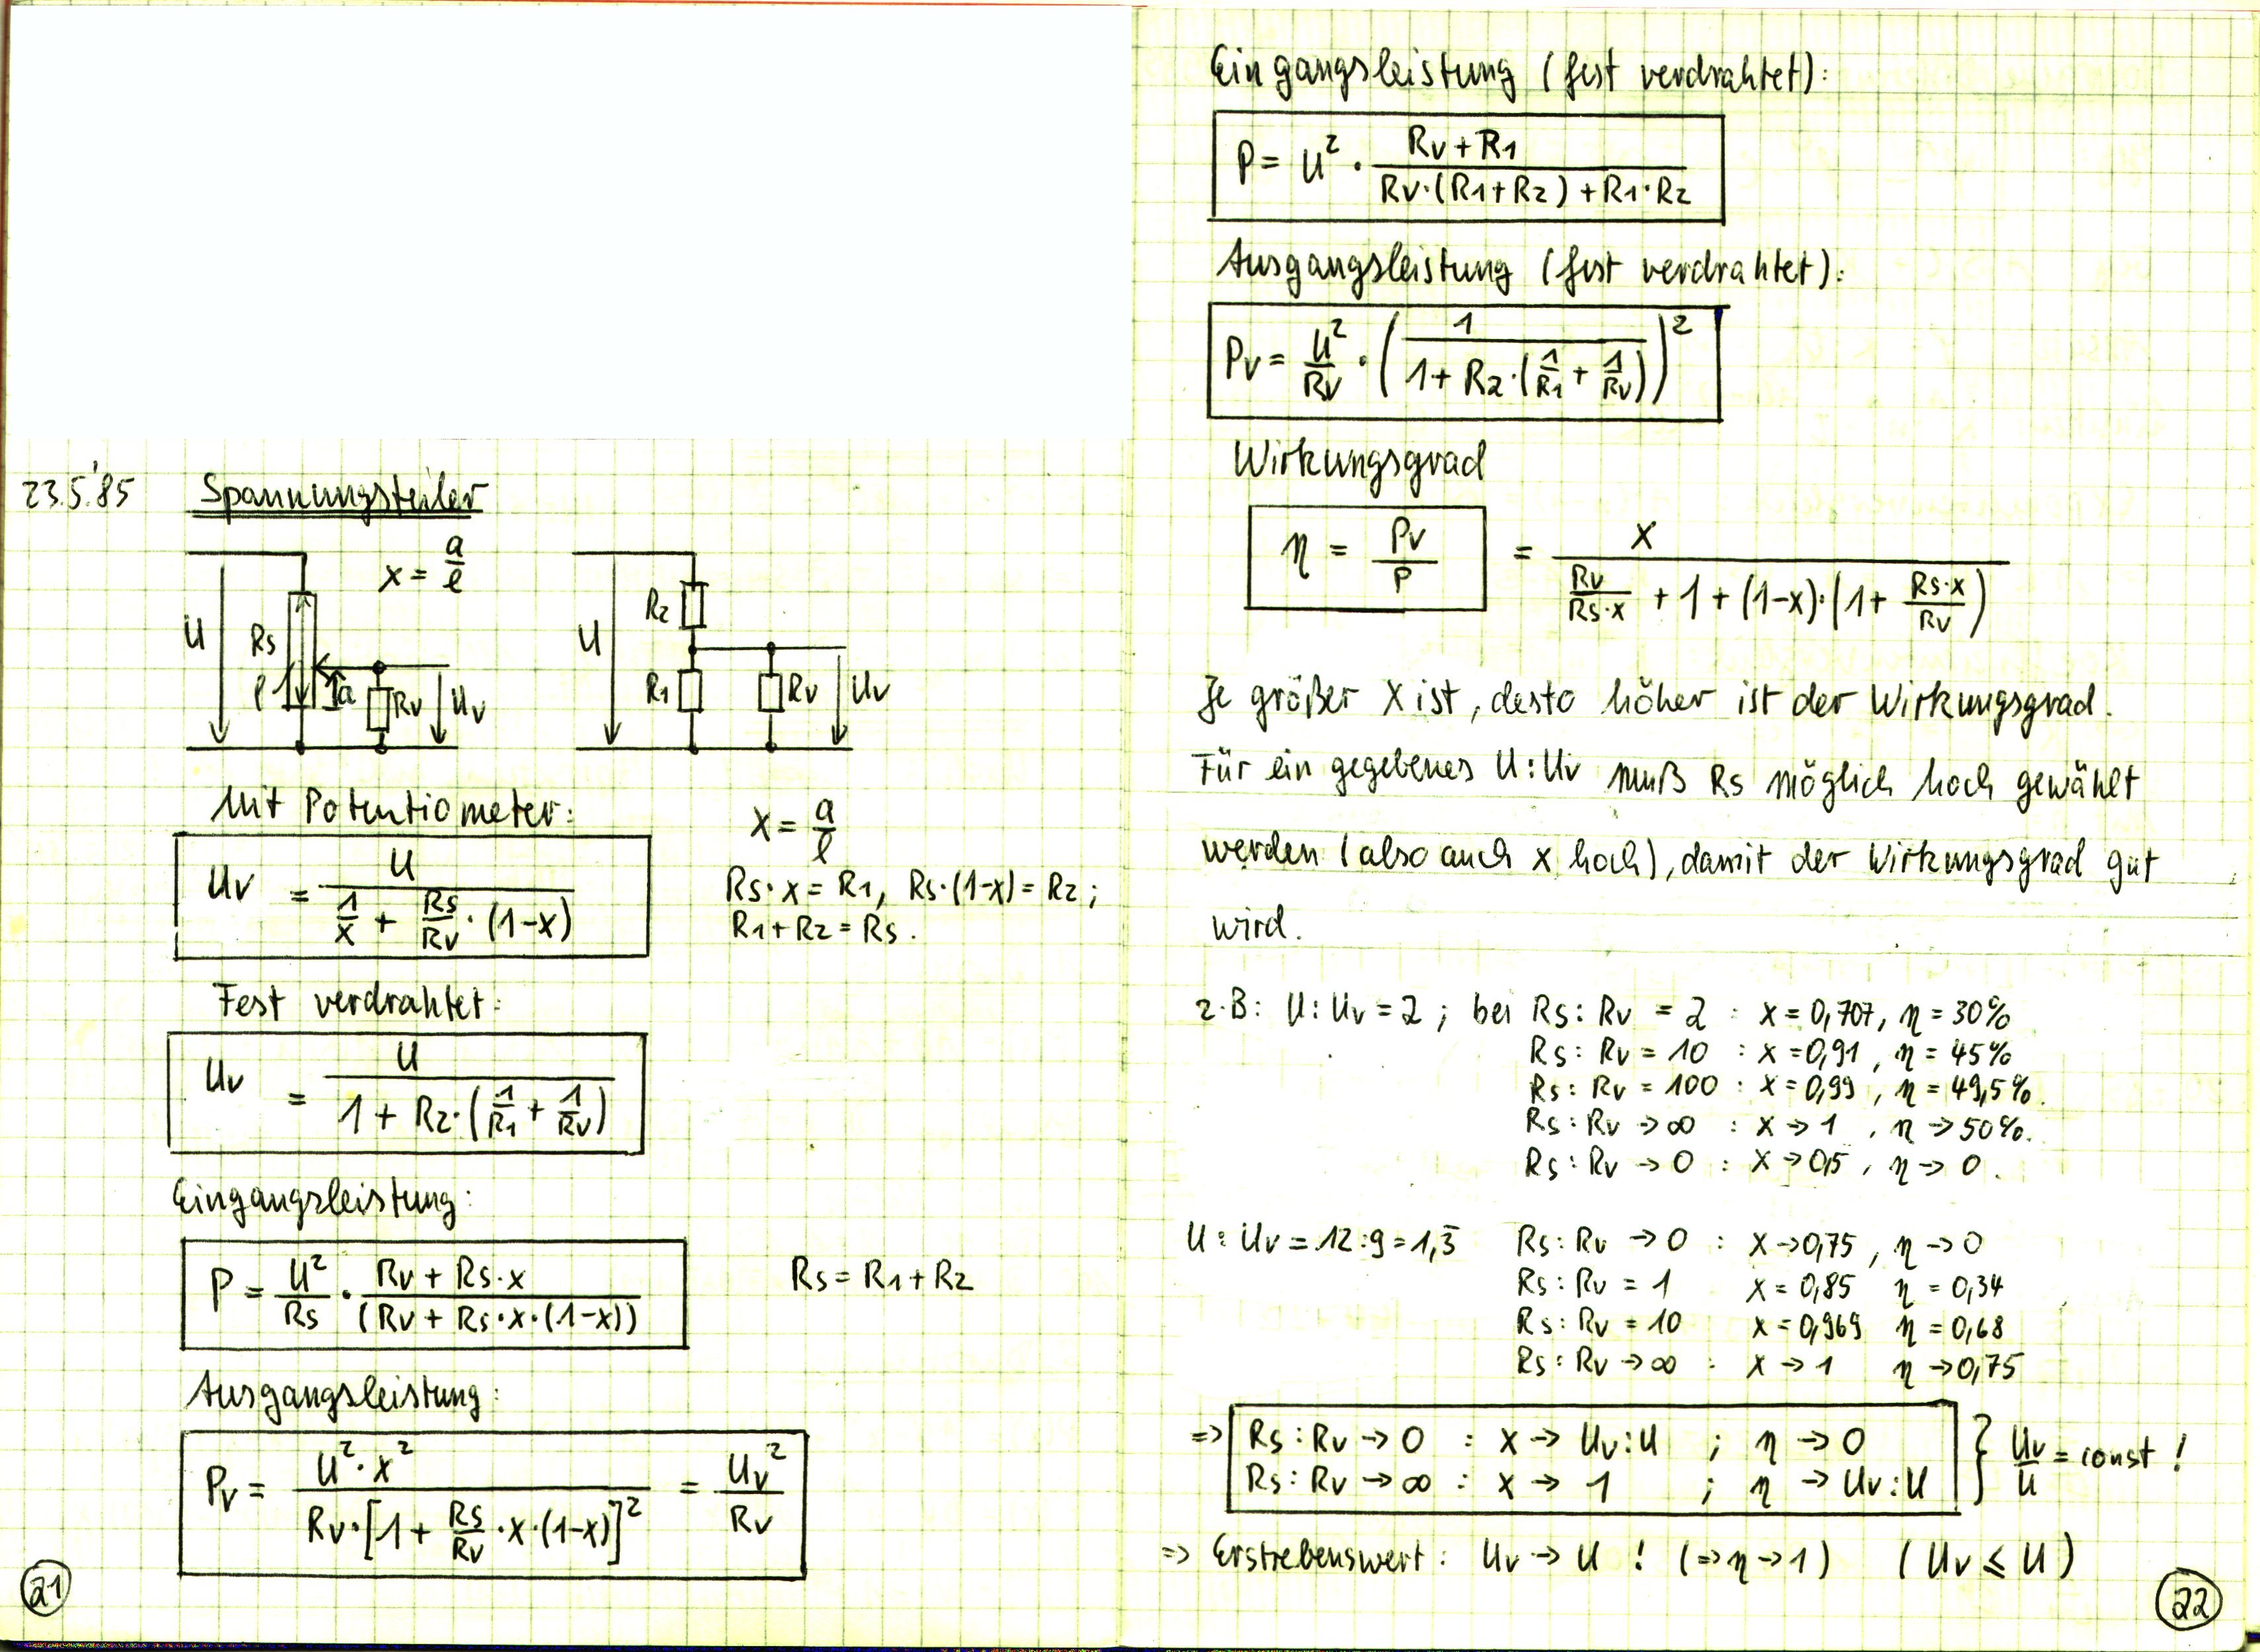 23.5.'85 Spannungsteiler
x = a/l
U Rs l a Rv Uv
U R2 R1 Rv Uv
Mit Potentiometer:
Uv = U / (1/x + Rs/Rv · (1-x))
x = a/l
Rs·x = R1, Rs·(1-x) = R2;
R1 + R2 = Rs.
Fest verdrahtet:
Uv = U / (1 + R2·(1/R1 + 1/Rv))
Eingangsleistung:
P = U²/Rs · (Rv + Rs·x) / (Rv + Rs·x·(1-x))
Rs = R1 + R2
Ausgangsleistung:
Pv = U²·x² / (Rv·[1 + Rs/Rv ·x·(1-x)]²) = Uv²/Rv
21
Eingangsleistung (fest verdrahtet):
P = U² · (Rv + R1) / (Rv·(R1+R2) + R1·R2)
Ausgangsleistung (fest verdrahtet):
Pv = U²/Rv · (1 / (1 + R2·(1/R1 + 1/Rv)))²
Wirkungsgrad
η = Pv/P = x / (Rv/(Rs·x) + 1 + (1-x)·(1 + Rs·x/Rv))
Je größer x ist, desto höher ist der Wirkungsgrad.
Für ein gegebenes U:Uv muß Rs möglich hoch gewählt
werden (also auch x hoch), damit der Wirkungsgrad gut
wird.
z.B: U:Uv = 2 ; bei Rs:Rv = 2 : x = 0,707, η = 30%
Rs:Rv = 10 : x = 0,91, η = 45%
Rs:Rv = 100 : x = 0,99, η = 49,5%.
Rs:Rv → ∞ : x → 1, η → 50%.
Rs:Rv → 0 : x → 0,5, η → 0.
U:Uv = 12:9 = 1,3̄ Rs:Rv → 0 : x → 0,75, η → 0
Rs:Rv = 1 x = 0,85 η = 0,34
Rs:Rv = 10 x = 0,969 η = 0,68
Rs:Rv → ∞ : x → 1 η → 0,75
⇒ Rs:Rv → 0 : x → Uv:U ; η → 0
Rs:Rv → ∞ : x → 1 ; η → Uv:U } Uv/U = const !
⇒ Erstrebenswert: Uv → U ! (⇒ η → 1) (Uv ≤ U)
22